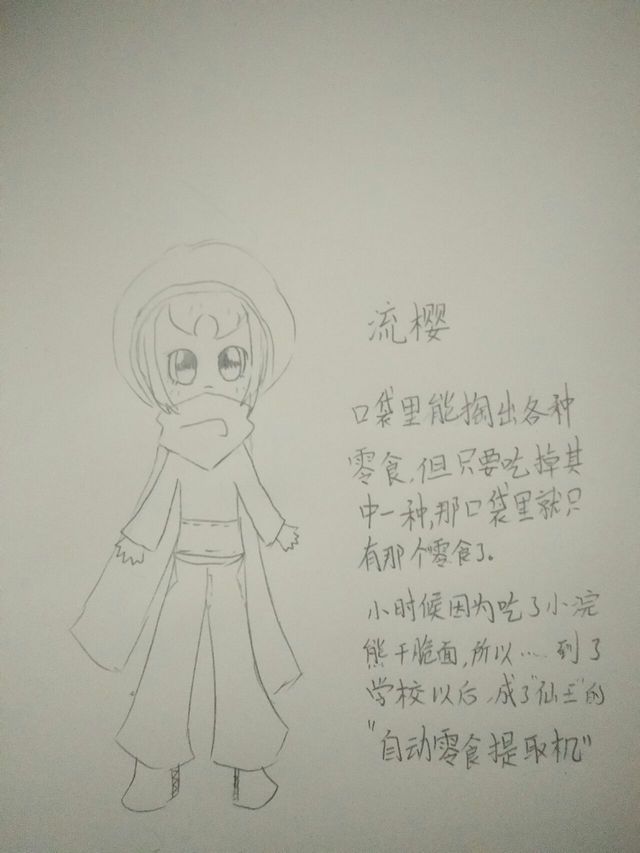 流樱
口袋里能掏出各种
零食,但只要吃掉其
中一种,那口袋里就只
有那个零食了。
小时候因为吃了小浣
熊干脆面,所以……到了
学校以后,成了"仙王"的
"自动零食提取机"